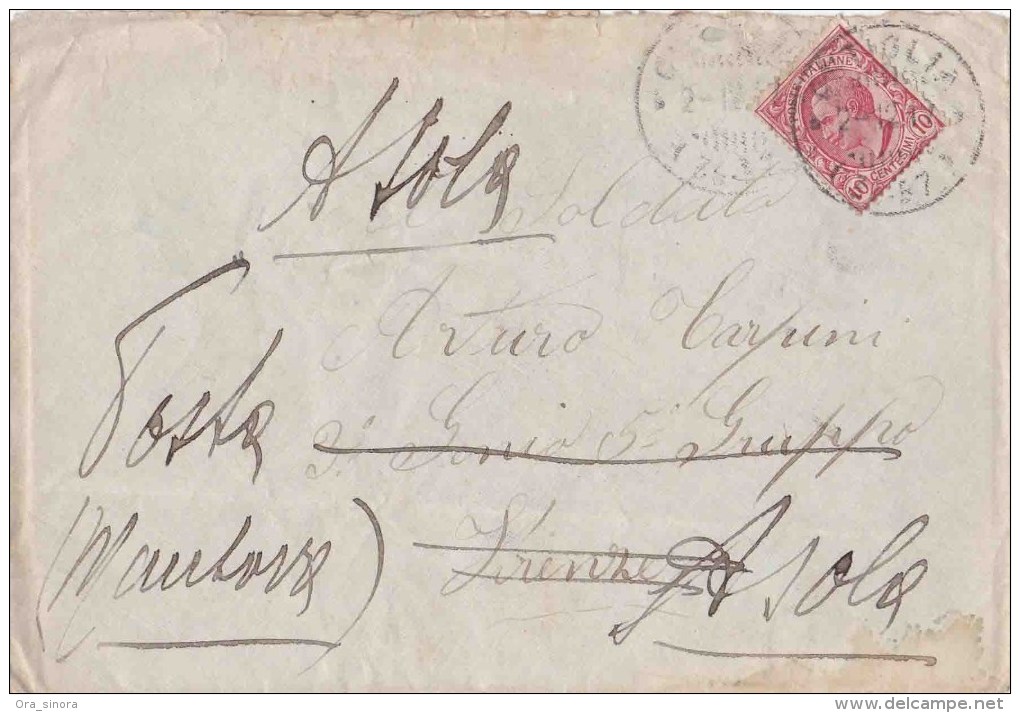 Asola
Soldato
Arturo Carpini
3° Genio 5° Gruppo
Firenze
Posta
(Mantova)
Asola
POSTE ITALIANE
10 CENTESIMI 10
Ora_sinora
delcampe.net